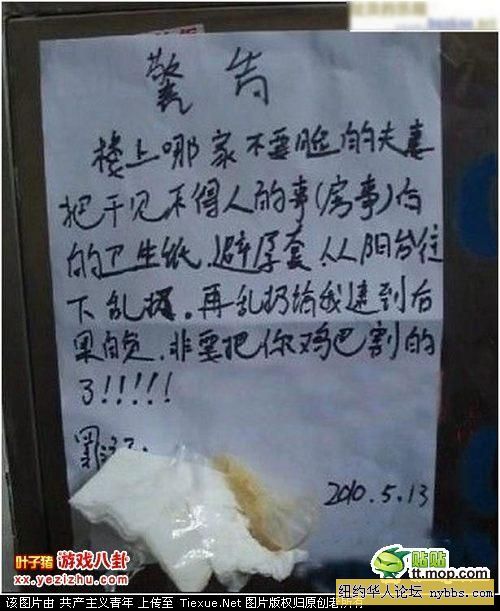 警告
楼上哪家不要脸的夫妻
把干见不得人的事(房事)后
的卫生纸.避孕套.从阳台往
下乱扔。再乱扔给我逮到后
果自负.非要把你鸡巴割的
了!!!!!
罪证:
2010.5.13
叶子猪 游戏八卦
xx.yezizhu.com
贴贴
tt.mop.com
纽约华人论坛 nybbs.com
该图片由 共产主义青年 上传至 Tiexue.Net 图片版权归原创者所有